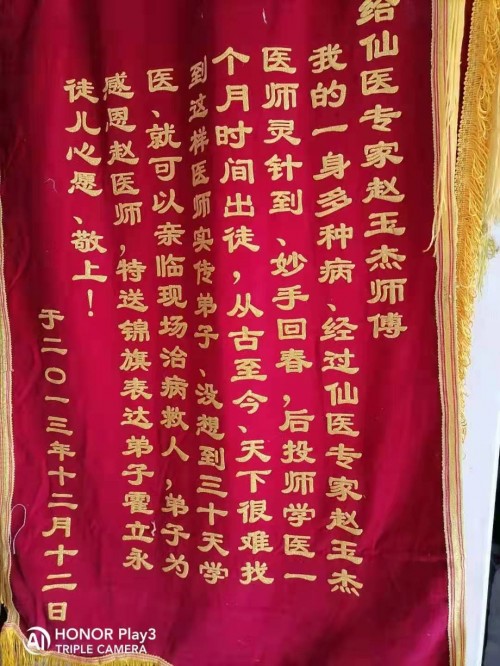 给仙医专家赵玉杰师傅
我的一身多种病、经过仙医专家赵玉杰
医师灵针到、妙手回春,后投师学医一
个月时间出徒,从古至今、天下很难找
到这样医师实传弟子、没想到三十天学
医、就可以亲临现场治病救人,弟子为
感恩赵医师,特送锦旗表达弟子霍立永
徒儿心愿、敬上!
于二〇一三年十二月十二日
HONOR Play3
TRIPLE CAMERA